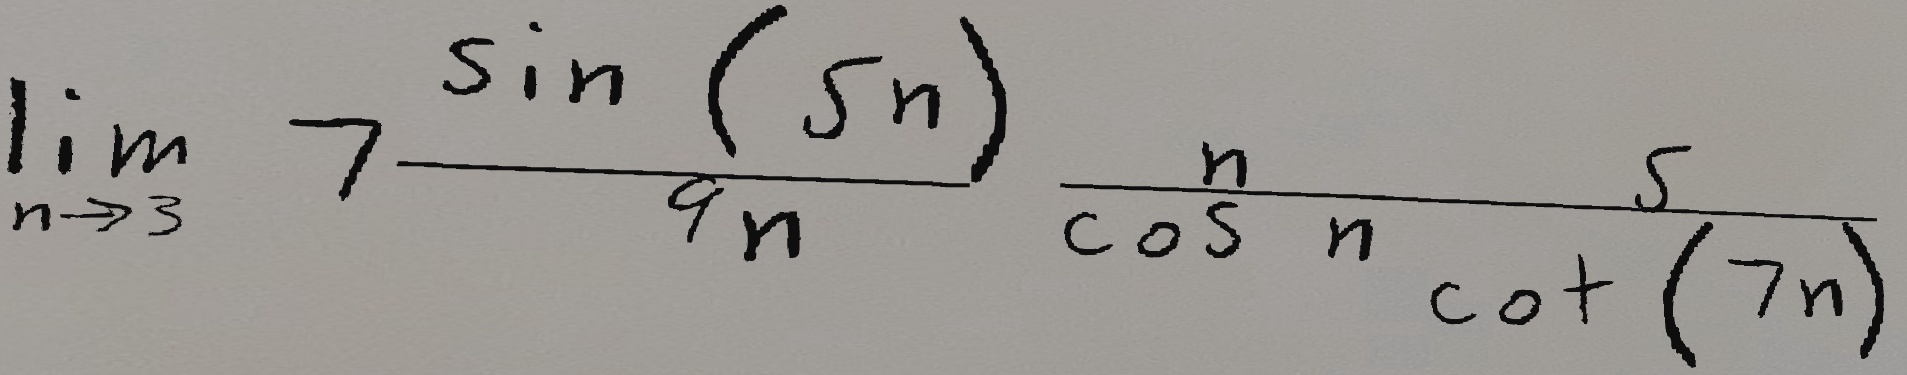 \lim_{n \to 3} 7 \frac{\sin(5n)}{9n} \frac{n}{\cos n} \frac{5}{\cot(7n)}